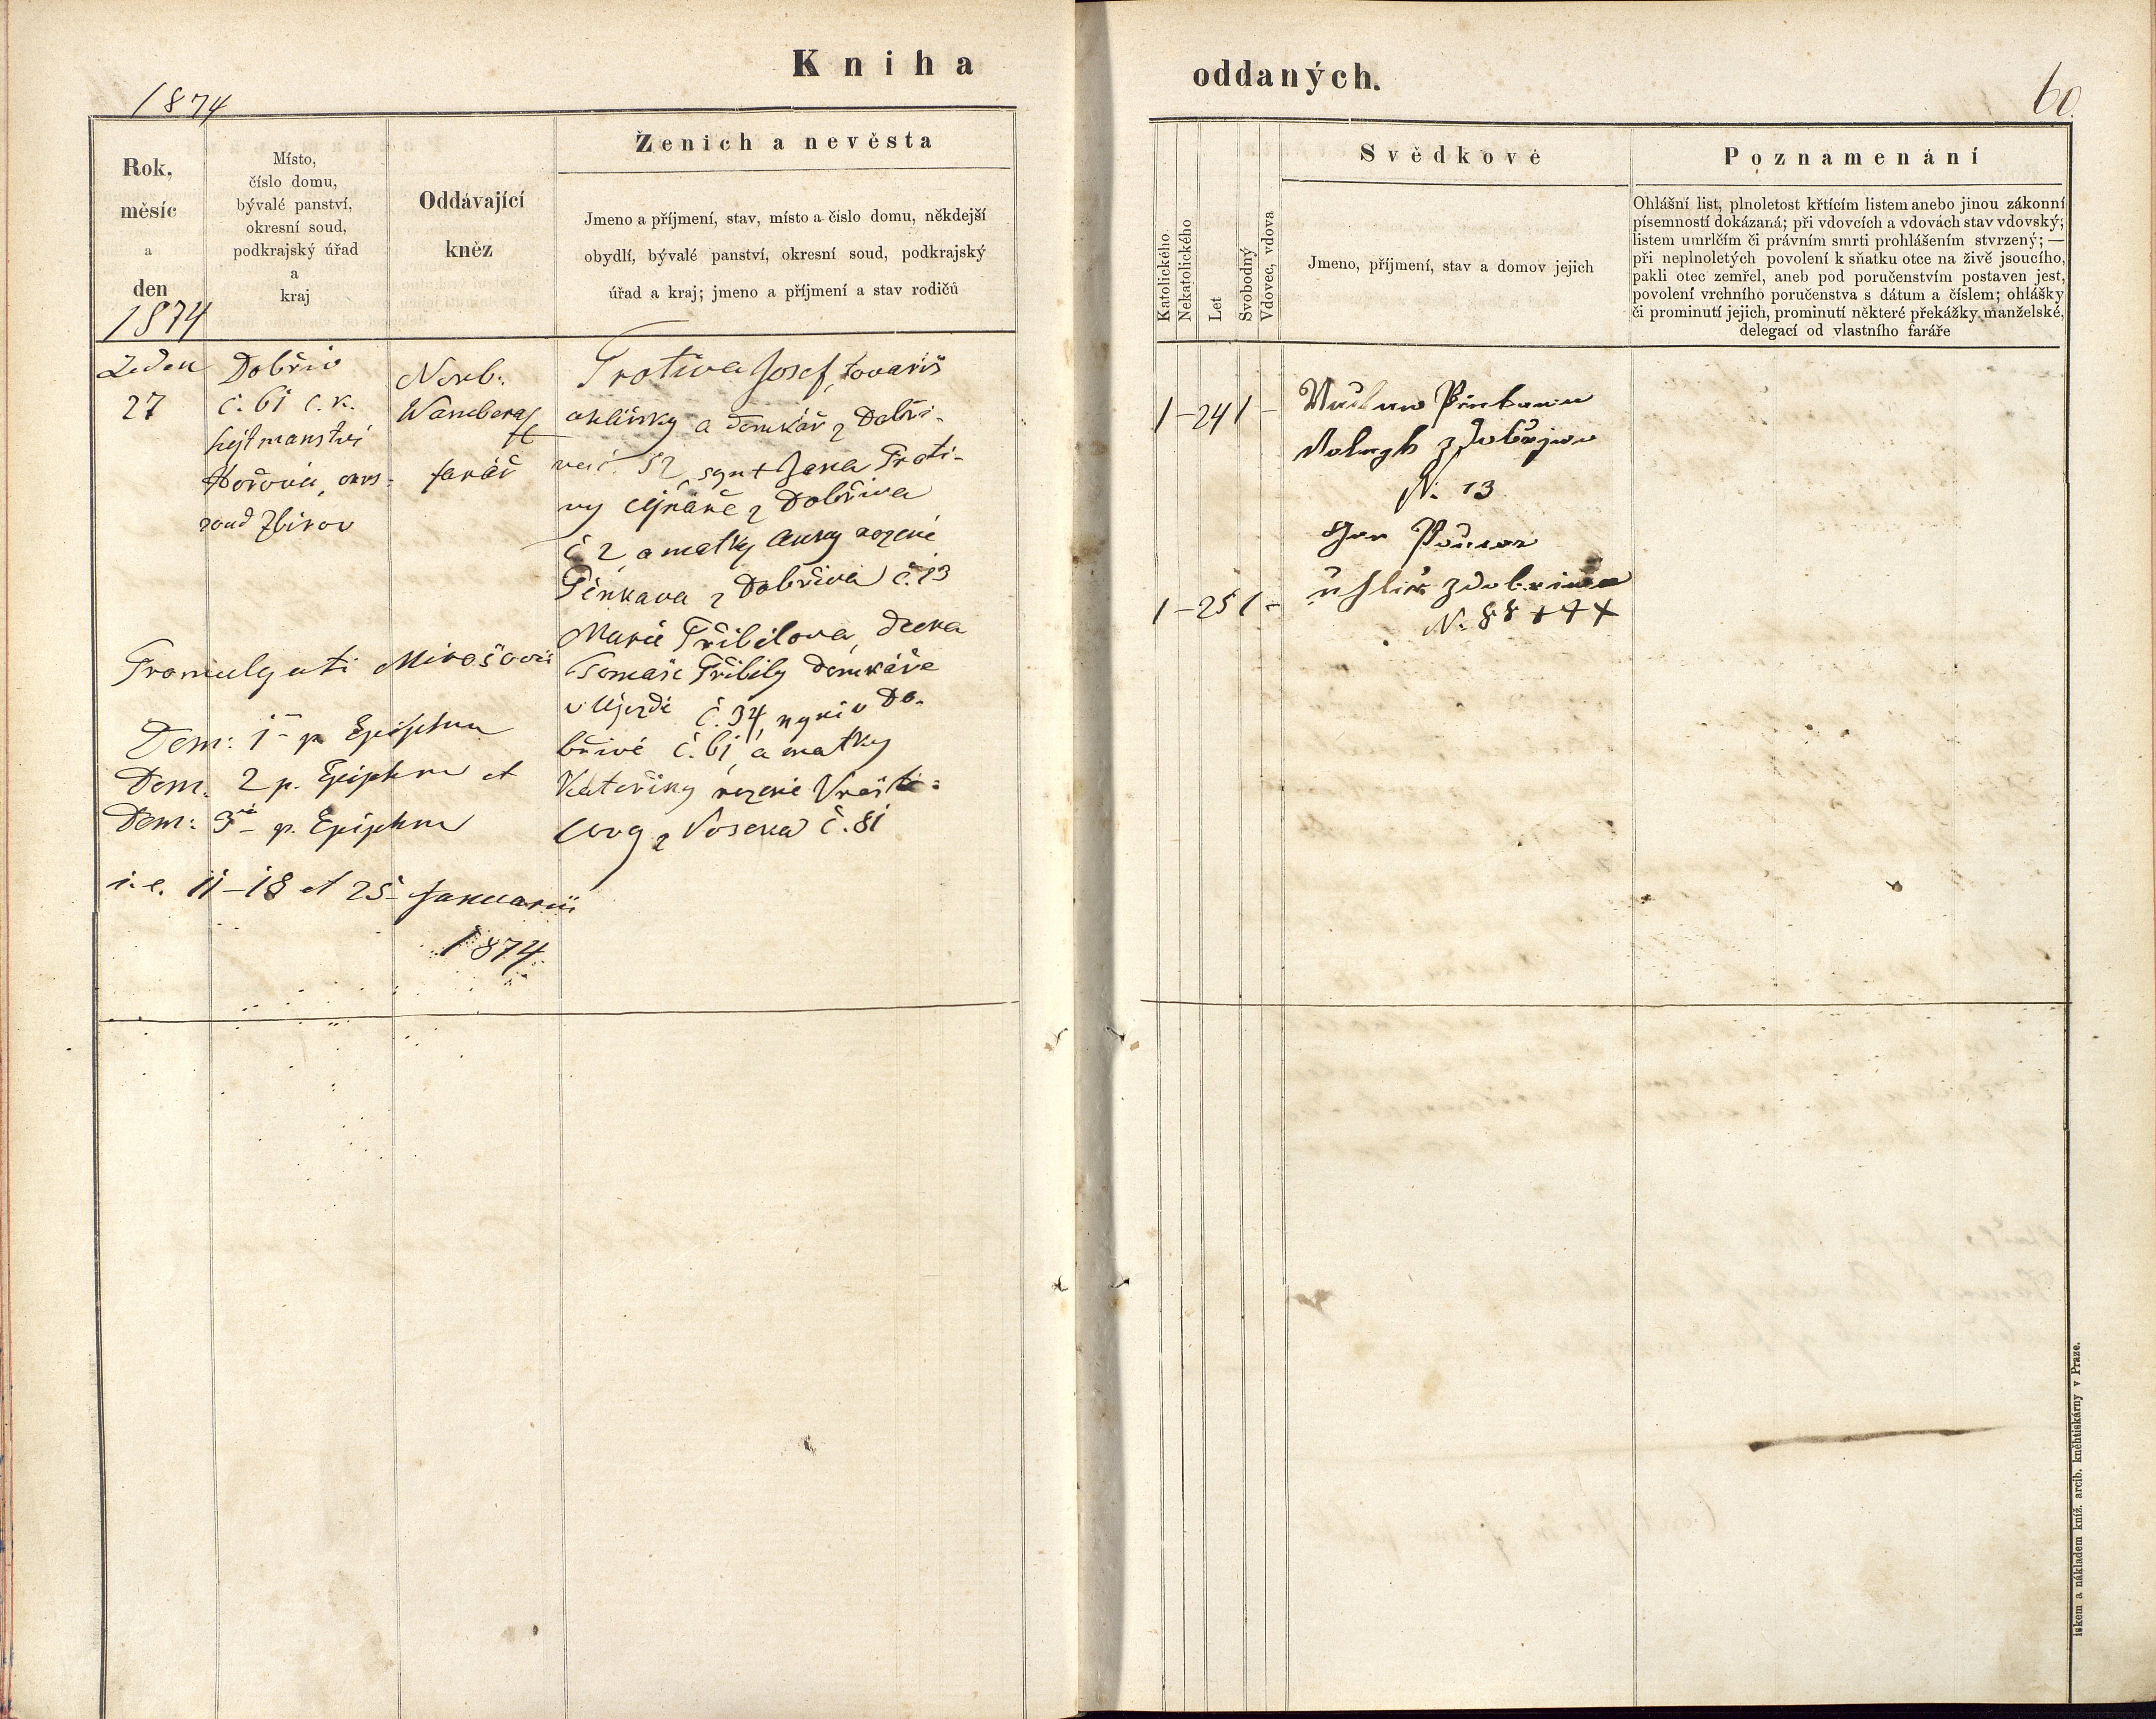 Kniha
oddaných.
1874
60
Rok,
měsíc
a
den
1874
Místo,
číslo domu,
bývalé panství,
okresní soud,
podkrajský úřad
a
kraj
Oddávající
kněz
Ženich a nevěsta
Jmeno a příjmení, stav, místo a číslo domu, někdejší
obydlí, bývalé panství, okresní soud, podkrajský
úřad a kraj; jmeno a příjmení a stav rodičů
Katolického
Nekatolického
Let
Svobodný
Vdovec, vdova
Svědkové
Jmeno, příjmení, stav a domov jejich
Poznamenání
Ohlášní list, plnoletost křtícím listem anebo jinou zákonní
písemností dokázaná; při vdovcích a vdovách stav vdovský;
listem umrlčím či právním smrti prohlášením stvrzený; —
při neplnoletých povolení k sňatku otce na živě jsoucího,
pakli otec zemřel, aneb pod poručenstvím postaven jest,
povolení vrchního poručenstva s dátum a číslem; ohlášky
či prominutí jejich, prominutí některé překážky manželské,
delegací od vlastního faráře
Leden
27
Dobřiv
č. 61 c. k.
hejtmanství
Hořovic, okrs:
soud Zbirov
Norb.
farář
Protiva Josef, tovariš
a domkář z Dobři-
va č. 52, syn + Jana Proti-
vy z Dobřiva
č 2, a matky Anny rozené
Pěnkava z Dobřiva č. 13
Marie Přibilova, dcera
Tomaše Přibily domkáře
v Ujezdě č. 34, nyni v Do-
břivě č. 61, a matky
Kateřiny rozené
z Voseka č. 81
Promulgati Mirošovii
Dom: 1 p. Epiphan
Dom. 2 p. Epiphan et
Dom: 3 p. Epiphan
i. e. 11-18 et 25 Januarii
1874
1-24 1-
1-25 1-
N. 13
Jan
z Dobřiva
N. 88 +++
iskem a nákladem kníž. arcib. kněhtiskárny v Praze.